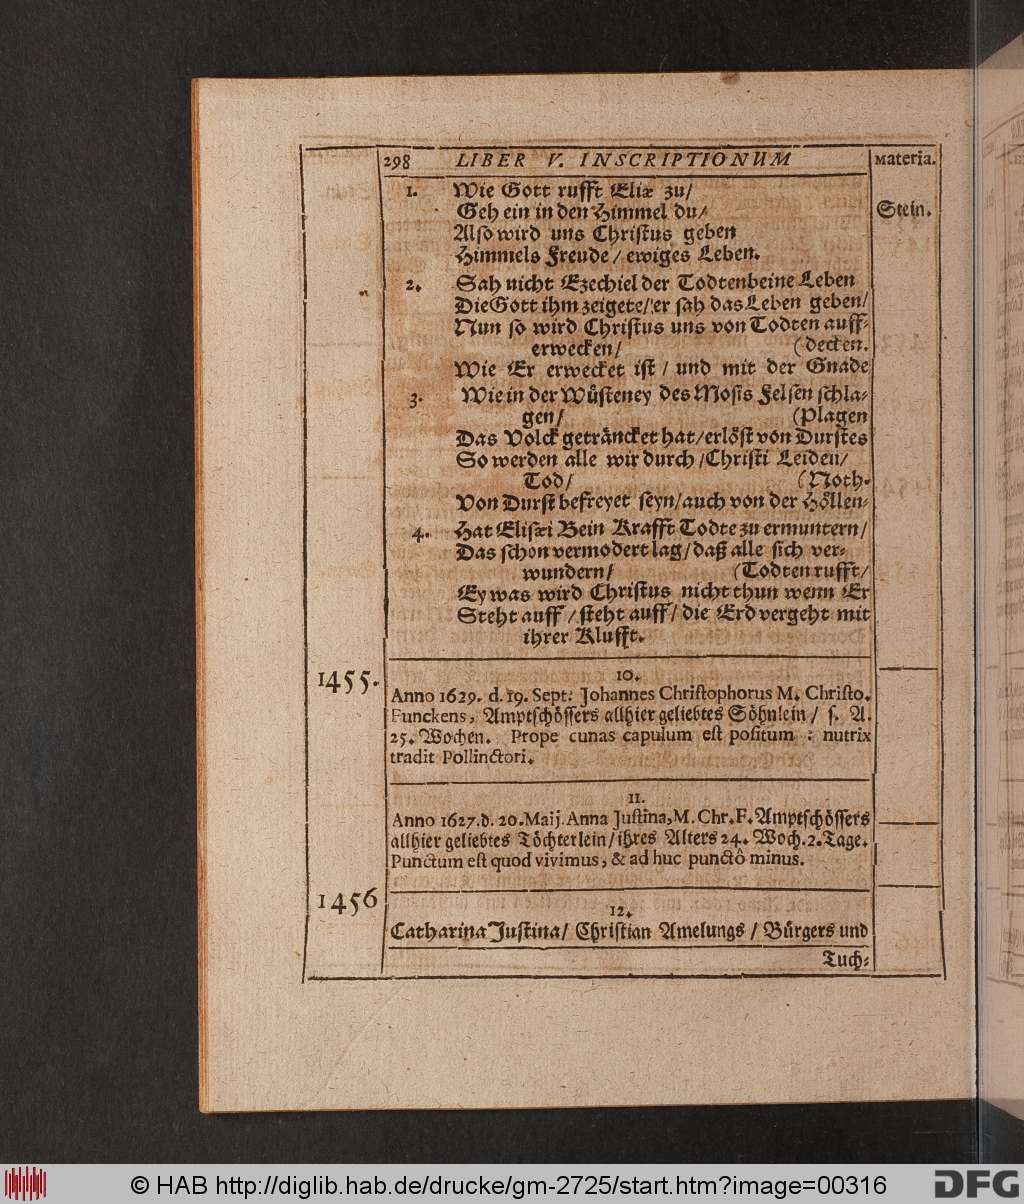 298 LIBER V. INSCRIPTIONUM Materia.
1. Wie Gott rufft Eliæ zu/
Geh ein in den Himmel du/
Stein.
Also wird uns Christus geben
Himmels Freude / ewiges Leben.
2. Sah nicht Ezechiel der Todtenbeine Leben
Die Gott ihm zeigete/ er sah das Leben geben/
Nun so wird Christus uns von Todten auff-
erwecken/ (decken.
Wie Er erwecket ist / und mit der Gnade
3. Wie in der Wüsteney des Mosis Felsen schla-
gen/ (Plagen
Das Volck geträncket hat/erlöst von Durstes
So werden alle wir durch /Christi Leiden/
Tod/ (Noth.
Von Durst befreyet seyn/auch von der Höllen-
4. Hat Elisæi Bein Krafft Todte zu ermuntern/
Das schon vermodert lag/daß alle sich ver-
wundern/ (Todten rufft/
Ey was wird Christus nicht thun wenn Er
Steht auff / steht auff / die Erd vergeht mit
ihrer Klufft.
1455.
10.
Anno 1629. d. 19. Sept: Johannes Christophorus M. Christo.
Funckens, Amptschössers allhier geliebtes Söhnlein / s. A.
25. Wochen. Prope cunas capulum est positum : nutrix
tradit Pollinctori.
11.
Anno 1627.d. 20.Maij.Anna Justina,M.Chr.F.Amptschössers
allhier geliebtes Töchterlein/ihres Alters 24. Woch.2.Tage.
Punctum est quod vivimus, & ad huc punctô minus.
1456
12.
Catharina Justina/ Christian Amelungs / Bürgers und
Tuch-
© HAB http://diglib.hab.de/drucke/gm-2725/start.htm?image=00316
DFG